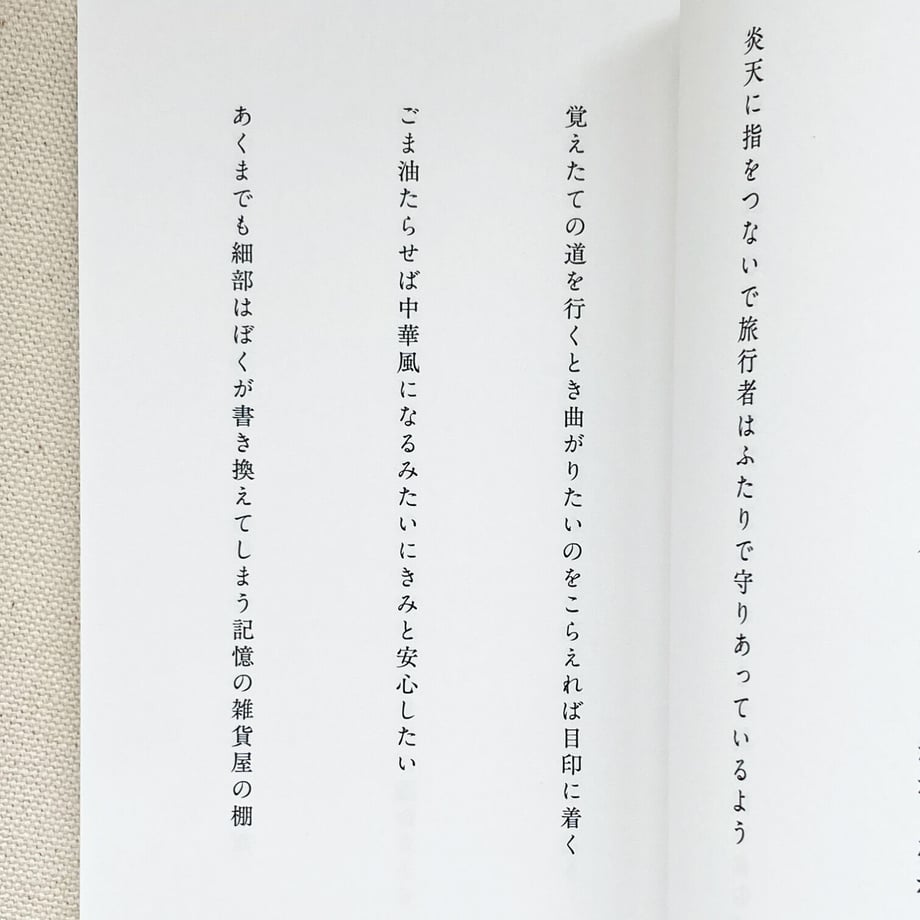 炎天に指をつないで旅行者はふたりで守りあっているよう
覚えたての道を行くとき曲がりたいのをこらえれば目印に着く
ごま油たらせば中華風になるみたいにきみと安心したい
あくまでも細部はぼくが書き換えてしまう記憶の雑貨屋の棚